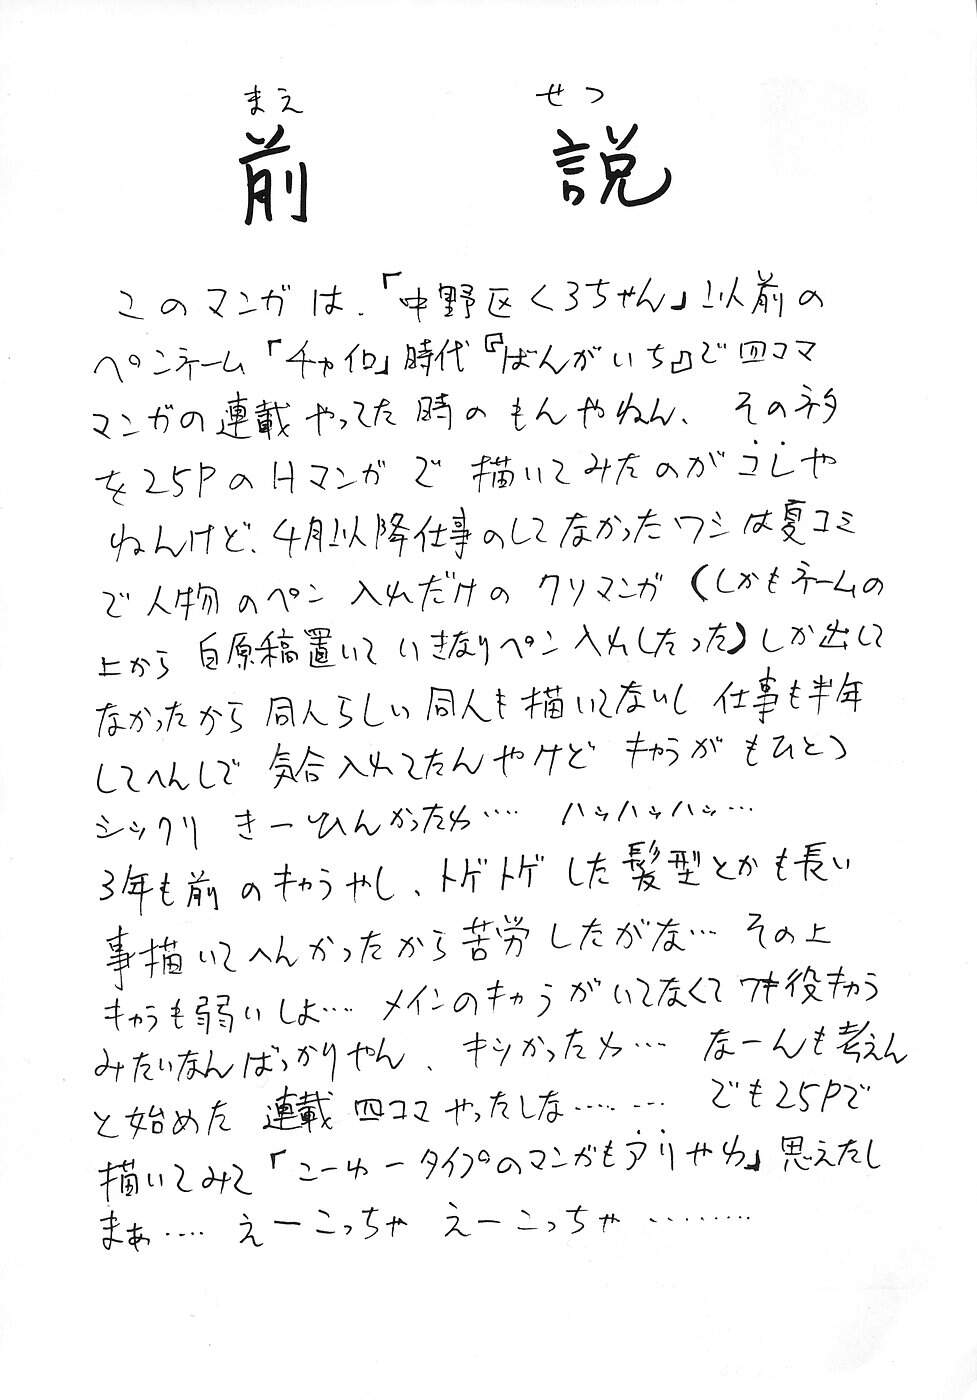 まえ せつ
前 説
このマンガは、「中野区くろちゃん」以前の
ペンネーム「チャイロ」時代『ばんがいち』で四コマ
マンガの連載やってた時のもんやねん、そのネタ
を25PのHマンガで描いてみたのがコレや
ねんけど、4月以降仕事のしてなかったワシは夏コミ
で人物のペン入れだけのクソマンガ(しかもネームの
上から白原稿置いていきなりペン入れしたった)しか出して
なかったから同人らしい同人も描いてないし仕事も半年
してへんしで気合入れてたんやけどキャラがもひとつ
シックリきーひんかったわ‥‥ ハッハッハッ…
3年も前のキャラやし、トゲトゲした髪型とかも長い
事描いてへんかったから苦労したがな… その上
キャラも弱いしよ…‥ メインのキャラがいてなくてワキ役キャラ
みたいなんばっかりやん、キツかったわ… なーんも考えん
と始めた連載四コマやったしな……… でも25Pで
描いてみて「こーゆータイプのマンガもアリやわ」思えたし
まぁ‥‥ えーこっちゃ えーこっちゃ ‥‥‥‥